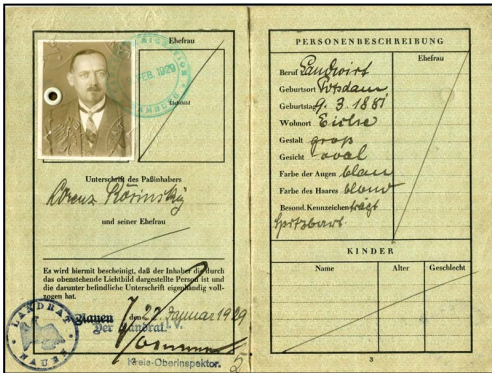 Ehefrau
FEB. 1929
Lichtbild
Unterschrift des Paßinhabers
und seiner Ehefrau
Es wird hiermit bescheinigt, daß der Inhaber die durch
das obenstehende Lichtbild dargestellte Person ist und
die darunter befindliche Unterschrift eigenhändig voll-
zogen hat.
Nauen, den 22. Januar 1929
Der Landrat. I.V.
Kreis-Oberinspektor.
LANDRAT NAUEN
2
PERSONENBESCHREIBUNG
Ehefrau
Beruf Landwirt
Geburtsort Potsdam
Geburtstag 9. 3. 1881
Wohnort Eiche
Gestalt groß
Gesicht oval
Farbe der Augen blau
Farbe des Haares blond
Besond. Kennzeichen trägt
Spitzbart.
KINDER
Name Alter Geschlecht
3